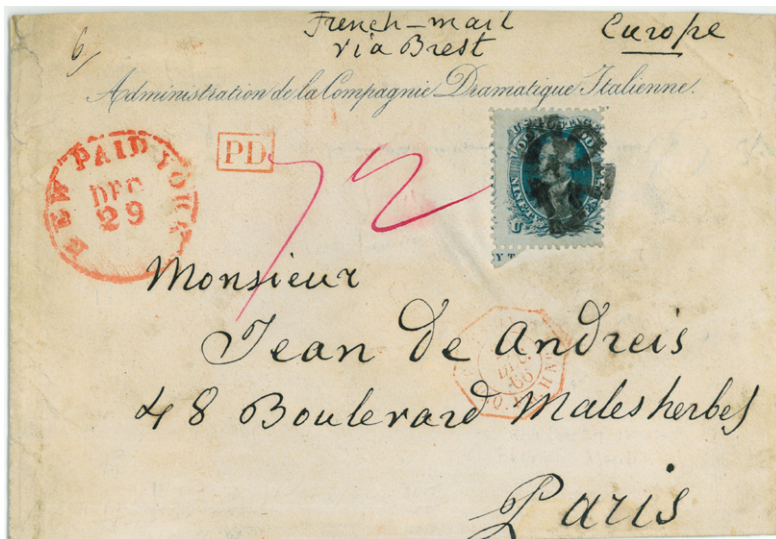 French-mail
via Brest
Europe
6/
Administration de la Compagnie Dramatique Italienne.
NEW PAID YORK
DEC
29
PD
72
Monsieur
Jean de Andreis
48 Boulevard Malesherbes
Paris